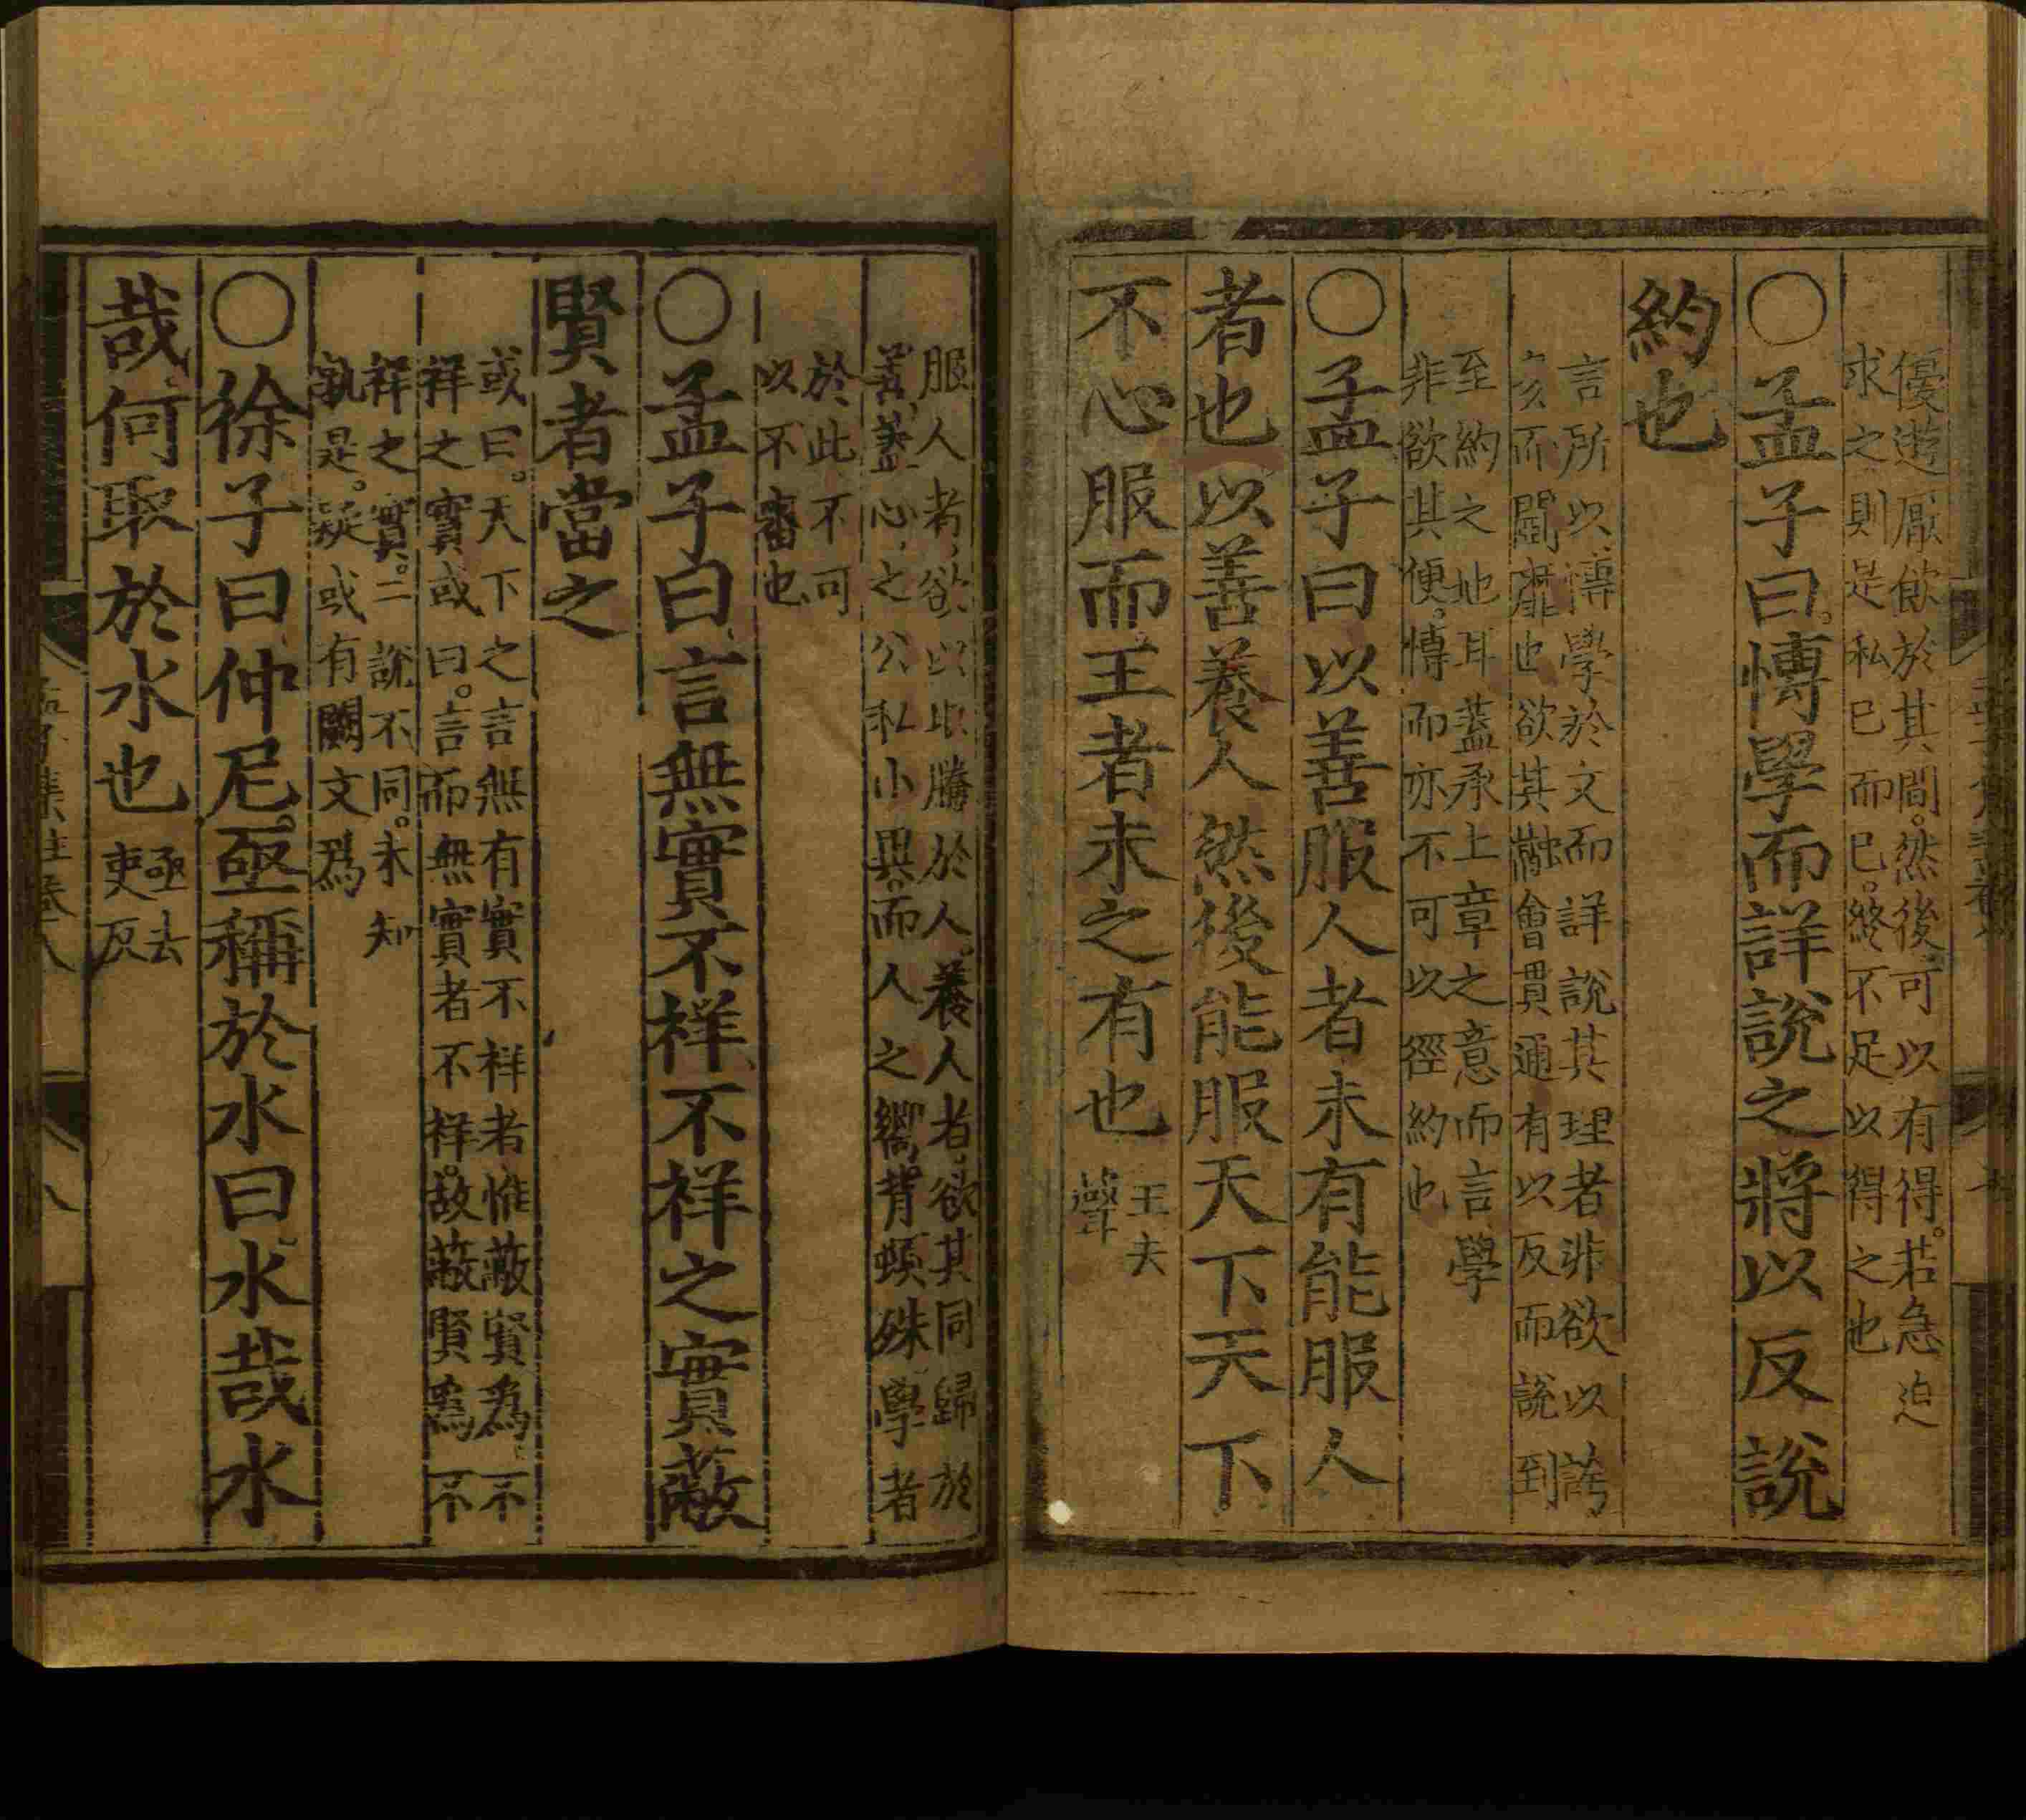 優遊厭飫於其間。然後可以有得。若急迫
求之則是私已而已。終不足以得之也
〇孟子曰。博學而詳說之將以反說
約也
言所以博學於文而詳說其理者非欲以誇
多而鬪靡也欲其融會貫通有以反而說到
至約之地耳蓋承上章之意而言學
非欲其便。博而亦不可以徑約也
〇孟子曰以善服人者未有能服人
者也以善養人然後能服天下天下
不心服而王者未之有也 王去
聲
服人者欲以取勝於人。養人者欲其同歸於
善蓋心之公私小異。而人之嚮。背頓殊學者
於此不可
以不審也
〇孟子曰言無實不祥不祥之實蔽
賢者當之
或曰。天下之言無有實不祥者惟蔽賢爲不
祥之實或曰。言而無實者不祥。故蔽賢爲不
祥之實。二說不同。未知
孰是。疑或有闕文焉
〇徐子曰仲尼亟稱於水曰水哉水
哉何取於水也 亟去
吏反
孟子集註卷八
八